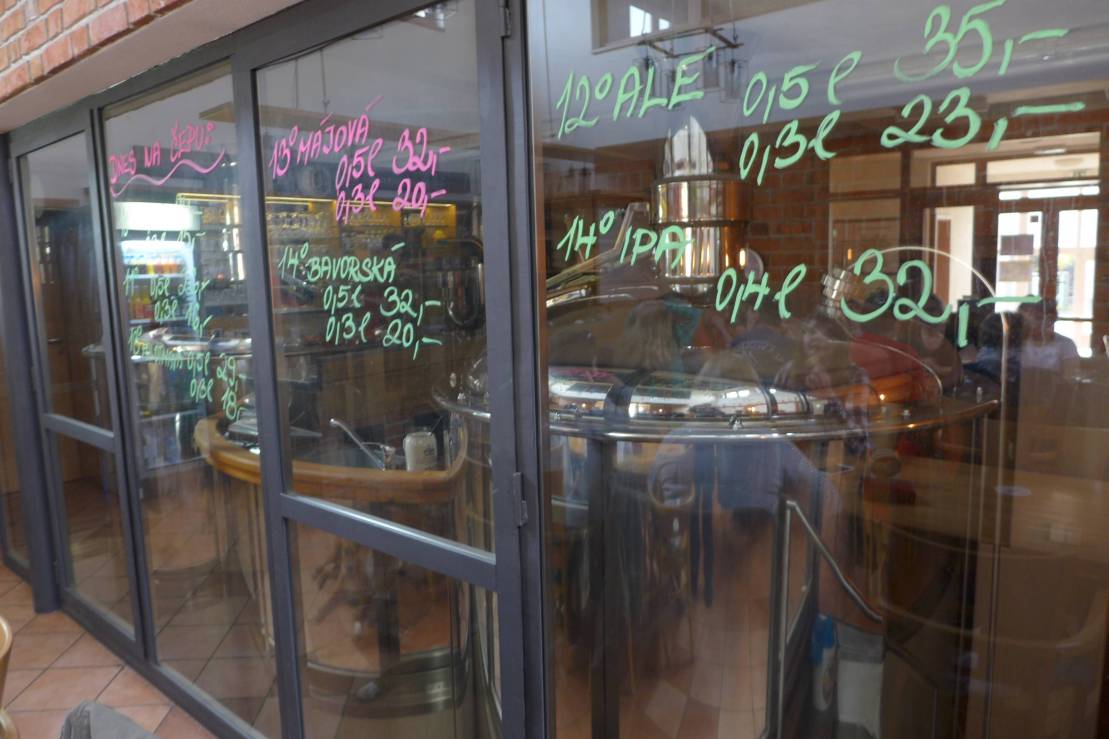 DNES NA ČEPU:
11° 0,5l
0,3l 18,-
0,5l 29,-
0,3l 18,-
13° MÁJOVÁ
0,5l 32,-
0,3l 20,-
14° BAVORSKÁ
0,5l 32,-
0,3l 20,-
12° ALE 0,5l 35,-
0,3l 23,-
14° IPA
0,4l 32,-